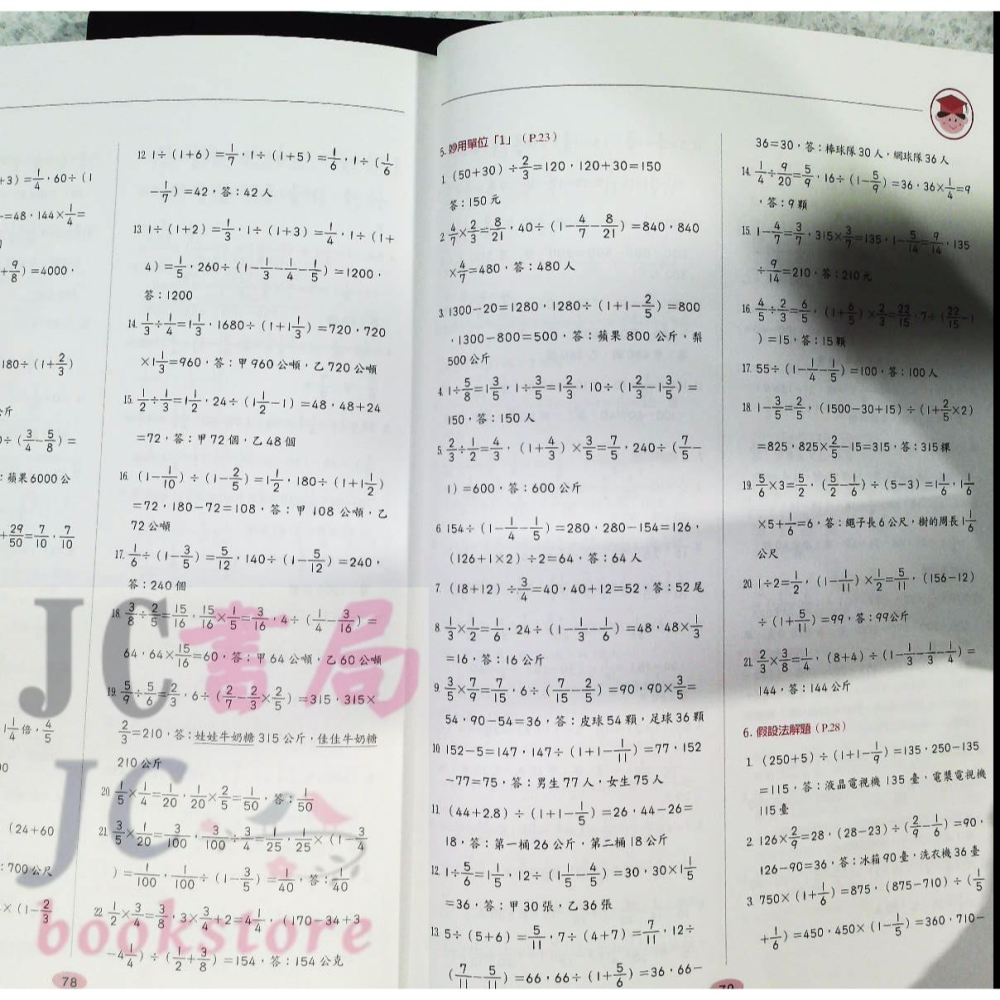 +3) =1/4,60÷(1
=48,144×1/4=
+9/8) =4000,
180÷(1+2/3)
公斤
÷(3/4-5/8) =
:蘋果6000公
+29/50=7/10,7/10
1 1/4倍,4/5
(24+60
:700公尺
×(1-2/3
12. 1÷(1+6) =1/7,1÷(1+5) =1/6,1÷(1/6
-1/7) =42,答:42人
13. 1÷(1+2) =1/3,1÷(1+3) =1/4,1÷(1+
4) =1/5,260÷(1-1/3-1/4-1/5) =1200,
答:1200
14. 1/3÷1/4=1 1/3,1680÷(1+1 1/3) =720,720
×1 1/3=960,答:甲960公噸,乙720公噸
15. 1/2÷1/3=1 1/2,24÷(1 1/2-1) =48,48+24
=72,答:甲72個,乙48個
16. (1-1/10) ÷(1-2/5) =1 1/2,180÷(1+1 1/2)
=72,180-72=108,答:甲108公噸,乙
72公噸
17. 1/6÷(1-3/5) =5/12,140÷(1-5/12) =240,
答:240個
18. 3/8÷2/5=15/16,15/16×1/5=3/16,4÷(1/4-3/16) =
64,64×15/16=60,答:甲64公噸,乙60公噸
19. 5/9÷5/6=2/3,6÷(2/7-2/3×2/5) =315,315×
2/3=210,答:娃娃牛奶糖315公斤,佳佳牛奶糖
210公斤
20. 1/5×1/4=1/20,1/20×2/5=1/50,答:1/50
21. 3/5×1/20=3/100,3/100÷3/4=1/25,1/25×(1-3/4
) =1/100,1/100÷(1-3/5) =1/40,答:1/40
22. 1/2×3/4=3/8,3×3/4+2=4 1/4,(170-34+3
-4 1/4) ÷(1/2+3/8) =154,答:154公克
78
JC書局
JC
bookstore
5. 妙用單位「1」(P.23)
1. (50+30) ÷2/3=120,120+30=150
答:150元
2. 4/7×2/3=8/21,40÷(1-4/7-8/21) =840,840
×4/7=480,答:480人
3. 1300-20=1280,1280÷(1+1-2/5) =800
,1300-800=500,答:蘋果800公斤,梨
500公斤
4. 1÷5/8=1 3/5,1÷3/5=1 2/3,10÷(1 2/3-1 3/5) =
150,答:150人
5. 2/3÷1/2=4/3,(1+4/3) ×3/5=7/5,240÷(7/5-
1) =600,答:600公斤
6. 154÷(1-1/4-1/5) =280,280-154=126,
(126+1×2) ÷2=64,答:64人
7. (18+12) ÷3/4=40,40+12=52,答:52尾
8. 1/3×1/2=1/6,24÷(1-1/3-1/6) =48,48×1/3
=16,答:16公斤
9. 3/5×7/9=7/15,6÷(7/15-2/5) =90,90×3/5=
54,90-54=36,答:皮球54顆,足球36顆
10. 152-5=147,147÷(1+1-1/11) =77,152
-77=75,答:男生77人,女生75人
11. (44+2.8) ÷(1+1-1/5) =26,44-26=
18,答:第一桶26公斤,第二桶18公斤
12. 1÷5/6=1 1/5,12÷(1 1/5-4/5) =30,30×1 1/5
=36,答:甲30張,乙36張
13. 5÷(5+6) =5/11,7÷(4+7) =7/11,12÷
(7/11-5/11) =66,66÷(1+5/6) =36,66-
36=30,答:棒球隊30人,網球隊36人
14. 1/4÷9/20=5/9,16÷(1-5/9) =36,36×1/4=9
,答:9顆
15. 1-4/7=3/7,315×3/7=135,1-5/14=9/14,135
÷9/14=210,答:210元
16. 4/5÷2/3=6/5,(1+6/5) ×2/3=22/15,7÷(22/15-1
) =15,答:15顆
17. 55÷(1-1/4-1/5) =100,答:100人
18. 1-3/5=2/5,(1500-30+15) ÷(1+2/5×2)
=825,825×2/5-15=315,答:315棵
19. 5/6×3=5/2,(5/2-1/6) ÷(5-3) =1 1/6,1 1/6
×5+1/6=6,答:繩子長6公尺,樹的周長1 1/6
公尺
20. 1÷2=1/2,(1-1/11) ×1/2=5/11,(156-12)
÷(1+5/11) =99,答:99公斤
21. 2/3×3/8=1/4,(8+4) ÷(1-1/3-1/3-1/4) =
144,答:144公斤
6. 假設法解題(P.28)
1. (250+5) ÷(1+1-1/9) =135,250-135
=115,答:液晶電視機135臺,電漿電視機
115臺
2. 126×2/9=28,(28-23) ÷(2/9-1/6) =90,
126-90=36,答:冰箱90臺,洗衣機36臺
3. 750×(1+1/6) =875,(875-710) ÷(1/5
+1/6) =450,450×(1-1/5) =360,710-